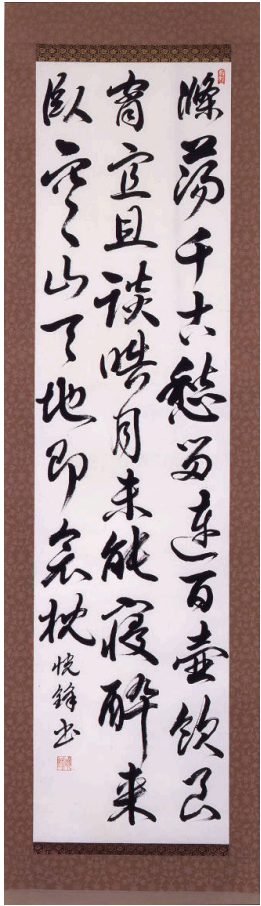 滌蕩千古愁留連百壺飲良
宵宜且談皓月未能寝酔来
臥空山天地即衾枕
悦鋒書